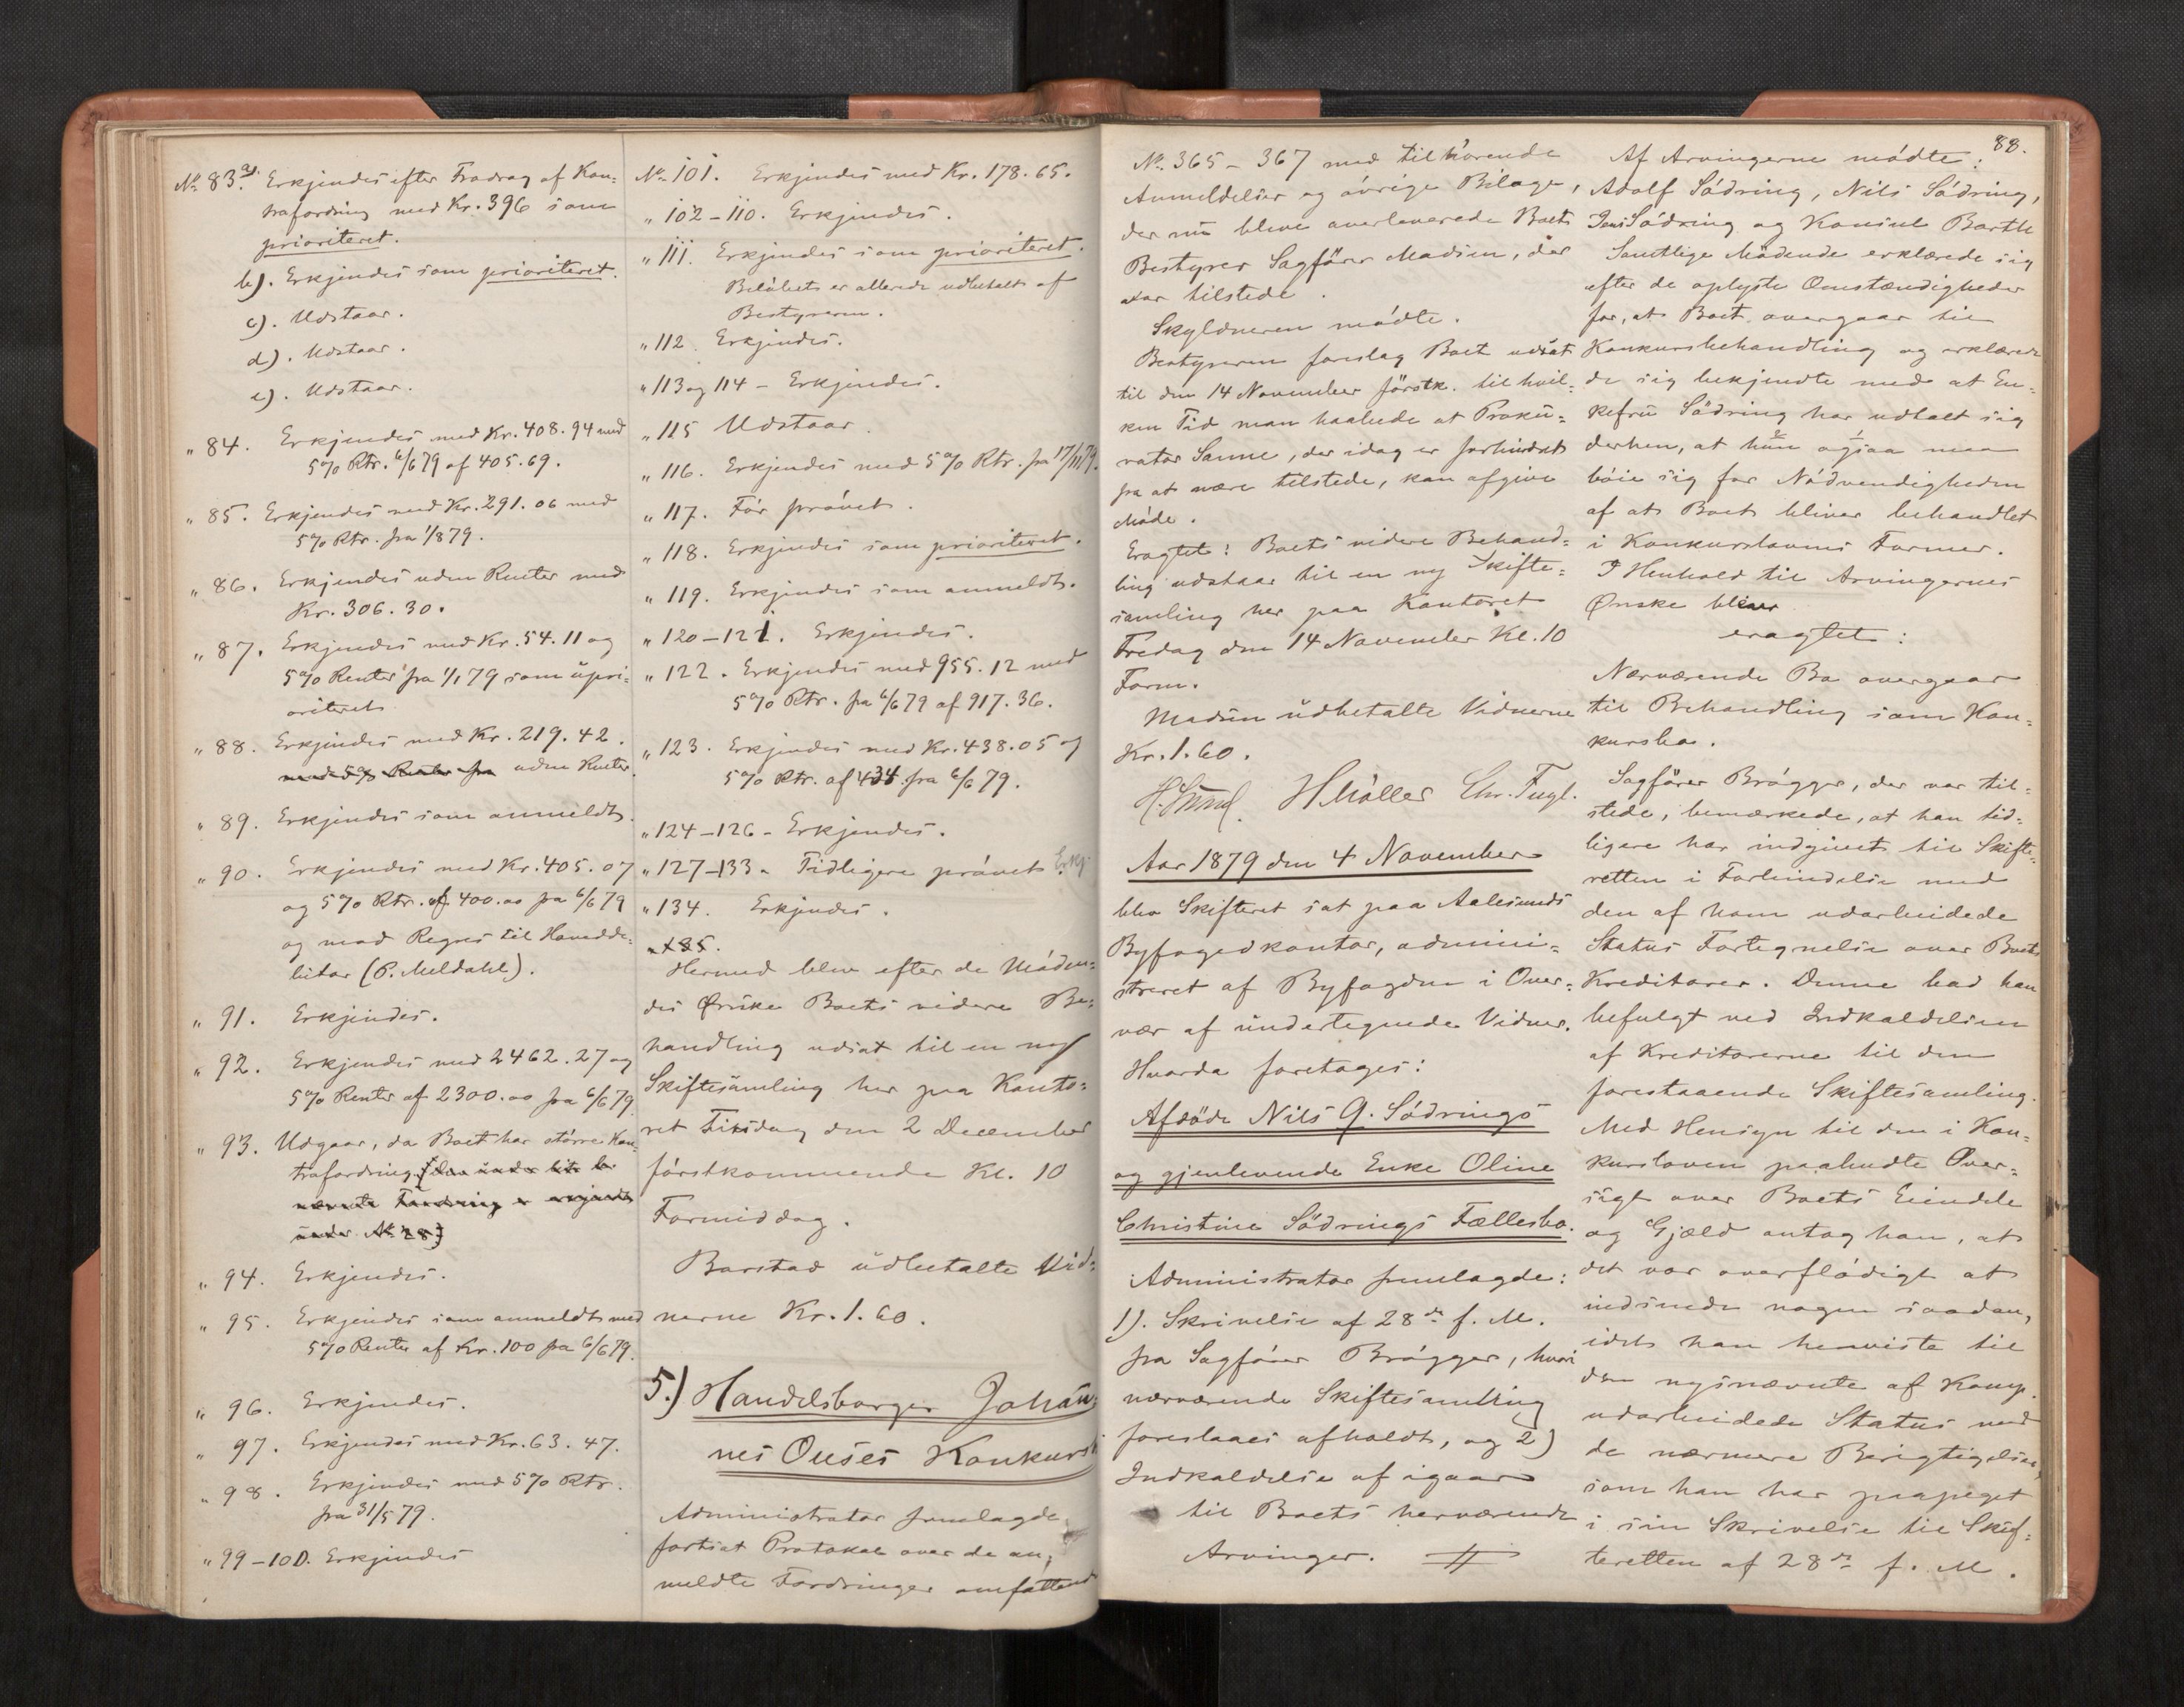 No 83 a). Erkjendes efter Fradrag af Kon-
trafordring med Kr. 396 som
prioriteret.
b). Erkjendes som prioriteret.
c). Udstaar.
d). Udstaar.
e). Udstaar.
" 84. Erkjendes med Kr. 408.94 med
5% Rtr. 6/6 79 af 405.69.
" 85. Erkjendes med Kr. 291.06 med
5% Rtr. fra 1/8 79.
" 86. Erkjendes uden Renter med
Kr. 306.30.
" 87. Erkjendes med Kr. 54.11 og
5% Renter fra 1/1 79 som upri-
oriteret
" 88. Erkjendes med Kr. 219.42.
med 5% Renter fra uden Renter.
" 89. Erkjendes som anmeldt.
" 90. Erkjendes med Kr. 405.07
og 5% Rtr. af 400.00 fra 6/6 79
og mod Regres til Hovedde-
bitor (P. Meldahl).
" 91. Erkjendes.
" 92. Erkjendes med 2462.27 og
5% Renter af 2300.00 fra 6/6 79.
" 93. Udgaar, da Boet har större Kon-
trafordring. (Den under litr b.
nævnte Fordring er erkjendt
under No 28)
" 94. Erkjendes.
" 95. Erkjendes som anmeldt med
5% Renter af Kr. 100 fra 6/6 79.
" 96. Erkjendes.
" 97. Erkjendes med Kr. 63.47.
" 98. Erkjendes med 5% Rtr.
fra 31/5 79.
" 99-100. Erkjendes
No 101. Erkjendes med Kr. 178.65.
" 102-110. Erkjendes.
" 111. Erkjendes som prioriteret.
Belöbet er allerede udbetalt af
Bestyreren.
" 112. Erkjendes.
" 113 og 114 - Erkjendes.
" 115 Udstaar.
" 116. Erkjendes med 5% Rtr. fra 17/11 79.
" 117. Før prövet.
" 118. Erkjendes som prioriteret.
" 119. Erkjendes som anmeldt.
" 120-121. Erkjendes.
" 122. Erkjendes med 955.12 med
5% Rtr. fra 6/6 79 af 917.36.
" 123. Erkjendes med Kr. 438.05 og
5% Rtr. af 434 fra 6/6 79.
" 124-126 - Erkjendes.
" 127-133 - Tidligere prövet. Erkj
" 134. Erkjendes.
" 135.
Hermed blev efter de Möden-
des Ønske Boets videre Be-
handling udsat til en ny
Skiftesamling her paa Konto-
ret Tirsdag den 2 December
förstkommende Kl. 10
Formiddag.
Barstad udbetalte Vid-
nerne Kr. 1.60.
5.) Handelsborger Johan-
nes Ouses Konkurs
Administrator fremlagde
fortsat Protokol over de an-
meldte Fordringer omfattende
88.
No 365-367 med tilhörende
Anmeldelser og övrige Bilage,
der nu bleve overleverede Boets
Bestyrer Sagförer Madsen, der
var tilstede.
Skyldneren mödte.
Bestyreren foreslog Boet udsat
til den 14 November förstk. til hvil-
ken Tid man haabede at Proku-
rator Sanne, der idag er forhindret
fra at være tilstede, kan afgive
Möde.
Eragtet: Boets videre Behand-
ling udstaar til en ny Skifte-
samling her paa Kontoret
Fredag den 14 November Kl. 10
Form.
Madsen udbetalte Vidnerne
Kr. 1.60.
H. Lund. H Möller Chr. Fugl.
Aar 1879 den 4 November
blev Skifteret sat paa Aalesunds
Byfogedkontor, admini-
streret af Byfogden i Over-
vær af undertegnede Vidner.
Hvorda foretoges:
Afdöde Nils G. Södrings
og gjenlevende Enke Oline
Christine Södrings Fællesbo.
Administrator fremlagde:
1). Skrivelse af 28de f. M.
fra Sagförer Brögger, hvori
nærværende Skiftesamling
foreslaaes afholdt, og 2)
Indkaldelse af igaar
til Boets herværende
Arvinger.
Af Arvingerne mödte:
Adolf Södring, Nils Södring,
Jens Södring og Konsul Barth
Samtlige Mödende erklærede sig
efter de oplyste Omstændigheder
for, at Boet overgaar til
Konkursbehandling og erklære-
de sig bekjendte med at En-
kefru Södring har udtalt sig
derhen, at hun ogsaa maa
böie sig for Nödvendigheden
af at Boet bliver behandlet
i Konkurslovens Former.
I Henhold til Arvingernes
Ønske blever
eragtet:
Nærværende Bo overgaar
til Behandling som Kon-
kursbo.
Sagförer Brögger, der var til-
stede, bemærkede, at han tid-
ligere har indgivet til Skifte-
retten i Forbindelse med
den af ham udarbeidede
Status Fortegnelse over Boets
Kreditorer. Denne bad han
befulgt ved Indkaldelsen
af Kreditorerne til den
forestaaende Skiftesamling.
Med Hensyn til den i Kon-
kursloven paabudte Over-
sigt over Boets Eiendele
og Gjæld antog han, at
det var overflödigt at
indsende nogen saadan,
idet han henviste til
den nysnævnte af Komp.
udarbeidede Status med
de nærmere Berigtigelser,
som han har paapeget
i sin Skrivelse til Skif-
teretten af 28de f. M.